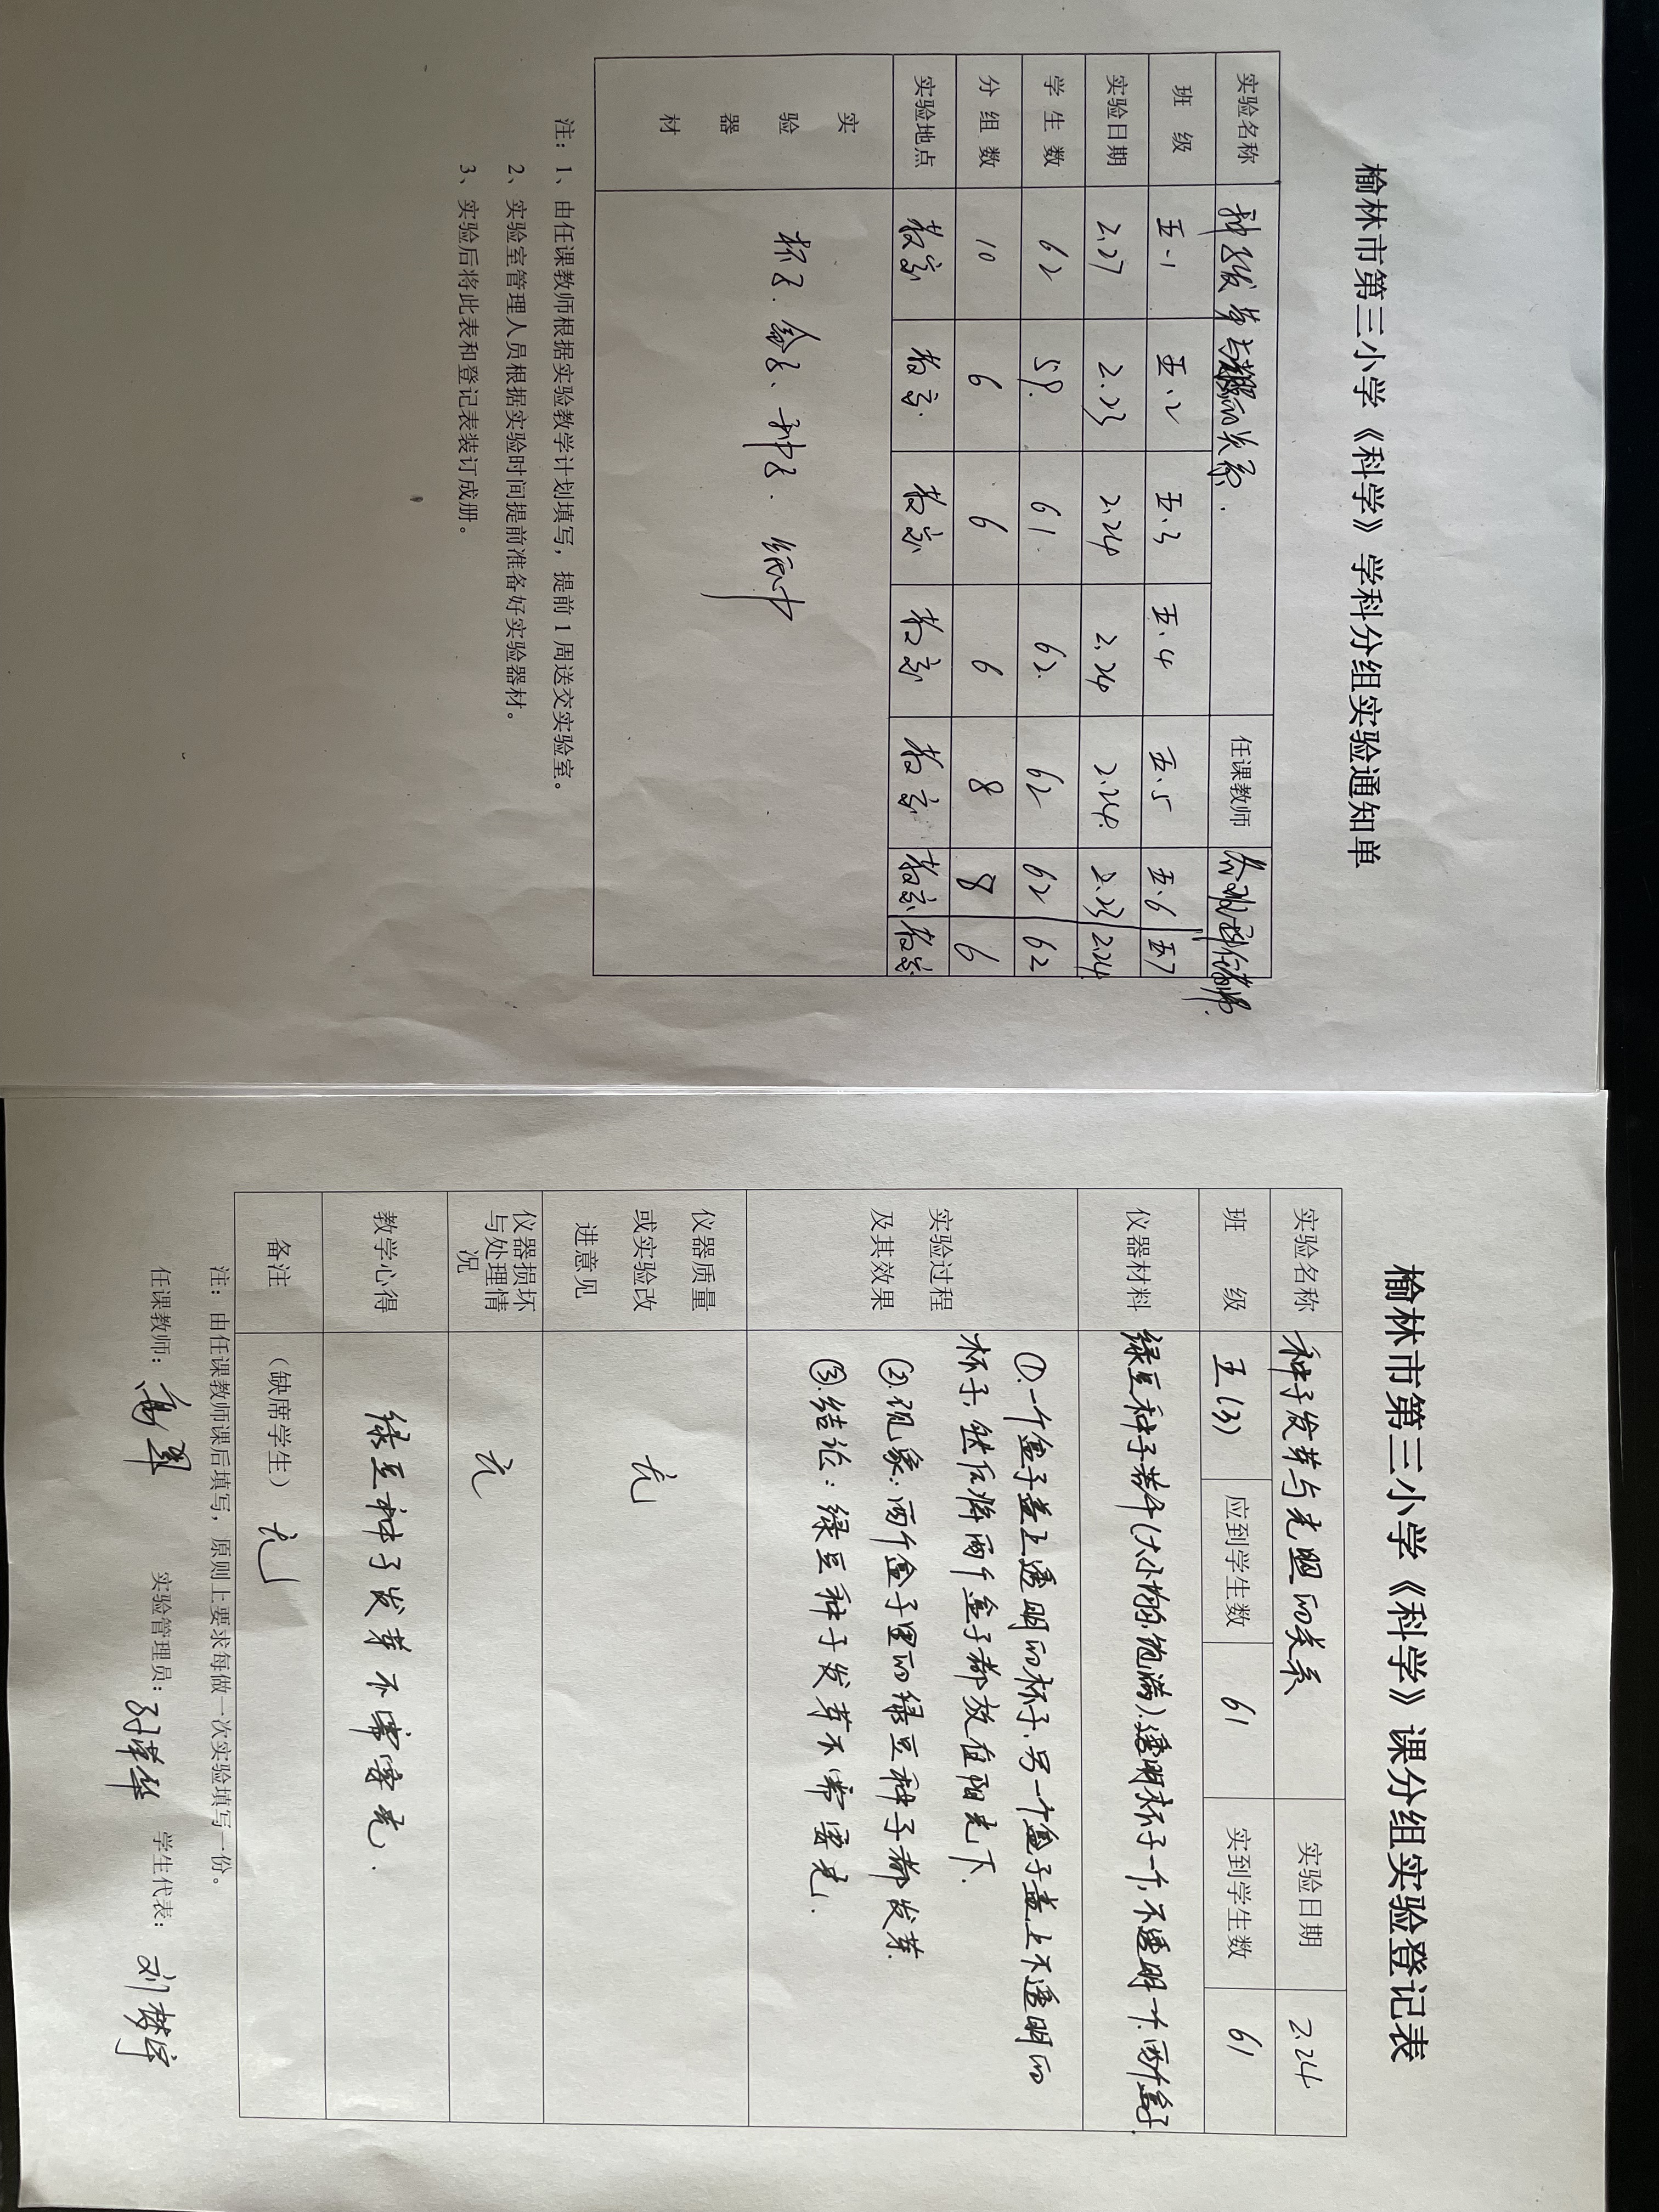 榆林市第三小学《科学》学科分组实验通知单
实验名称 种子发芽与光照的关系. 任课教师 各班科任教师.
班 级 五.1 五.2 五.3 五.4 五.5 五.6 五.7
实验日期 2.27 2.23 2.24 2.24 2.24. 2.23 2.24
学 生 数 62 59. 61. 62. 62 62 62
分 组 数 10 6 6 6 8 8 6
实验地点 教室 教室. 教室 教室 教室 教室 教室.
实 验 器 材 杯子.盒子、种子.纸巾
注：1、由任课教师根据实验教学计划填写，提前 1 周送交实验室。
2、实验室管理人员根据实验时间提前准备好实验器材。
3、实验后将此表和登记表装订成册。
榆林市第三小学《科学》课分组实验登记表
实验名称 种子发芽与光照的关系 实验日期 2.24
班 级 五(3) 应到学生数 61 实到学生数 61
仪器材料 绿豆种子若干(大小均匀.饱满).透明杯子一个,不透明一个.两个盒子.
实验过程
及其效果
①.一个盒子盖上透明的杯子.另一个盒子盖上不透明的
杯子,然后将两个盒子都放在阳光下.
②.现象:两个盒子里的绿豆种子都发芽.
③.结论:绿豆种子发芽不需要光.
仪器质量
或实验改
进意见
无
仪器损坏
与处理情
况
无
教学心得 绿豆种子发芽不需要光.
备注 （缺席学生）无
注：由任课教师课后填写，原则上要求每做一次实验填写一份。
任课教师： 实验管理员： 学生代表：刘梦宇